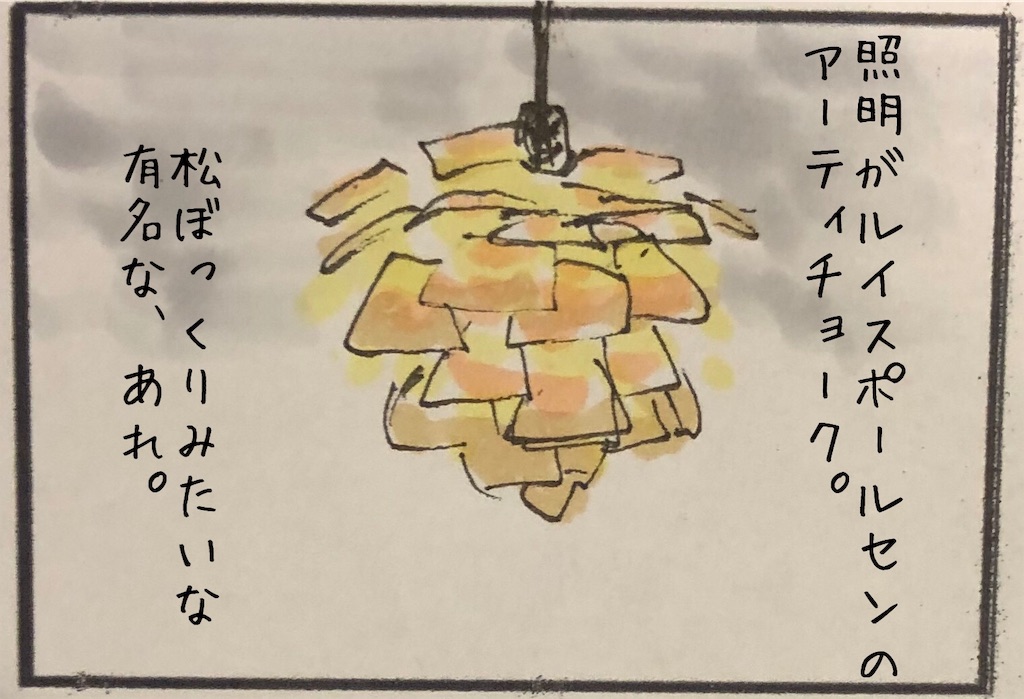 照明がルイスポールセンの
アーティチョーク。
松ぼっくりみたいな
有名な、あれ。